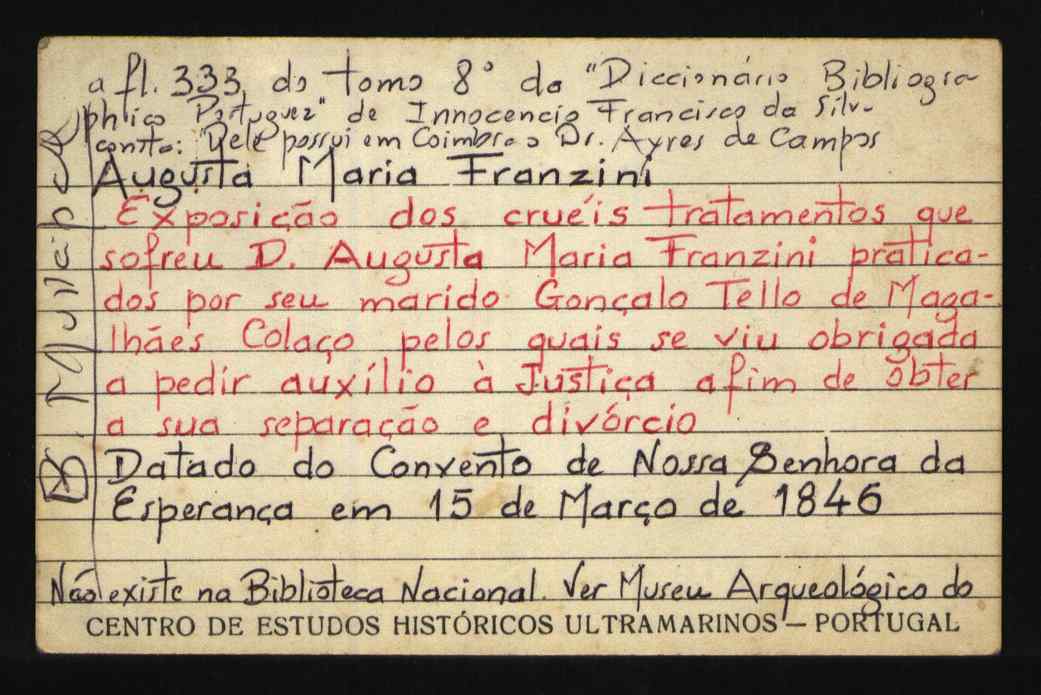 a fl. 333, do tomo 8º do "Diccionário Bibliogra-
phico Portuguez" de Innocencio Francisco da Silva
consta: "Dele possui em Coimbra o Dr. Ayres de Campos
Augusta Maria Franzini
Exposição dos cruéis tratamentos que
sofreu D. Augusta Maria Franzini pratica-
dos por seu marido Gonçalo Tello de Maga-
lhães Colaço pelos quais se viu obrigada
a pedir auxílio à Justiça afim de obter
a sua separação e divórcio
Datado do Convento de Nossa Senhora da
Esperança em 15 de Março de 1846
Não existe na Biblioteca Nacional. Ver Museu Arqueológico do
CENTRO DE ESTUDOS HISTÓRICOS ULTRAMARINOS — PORTUGAL